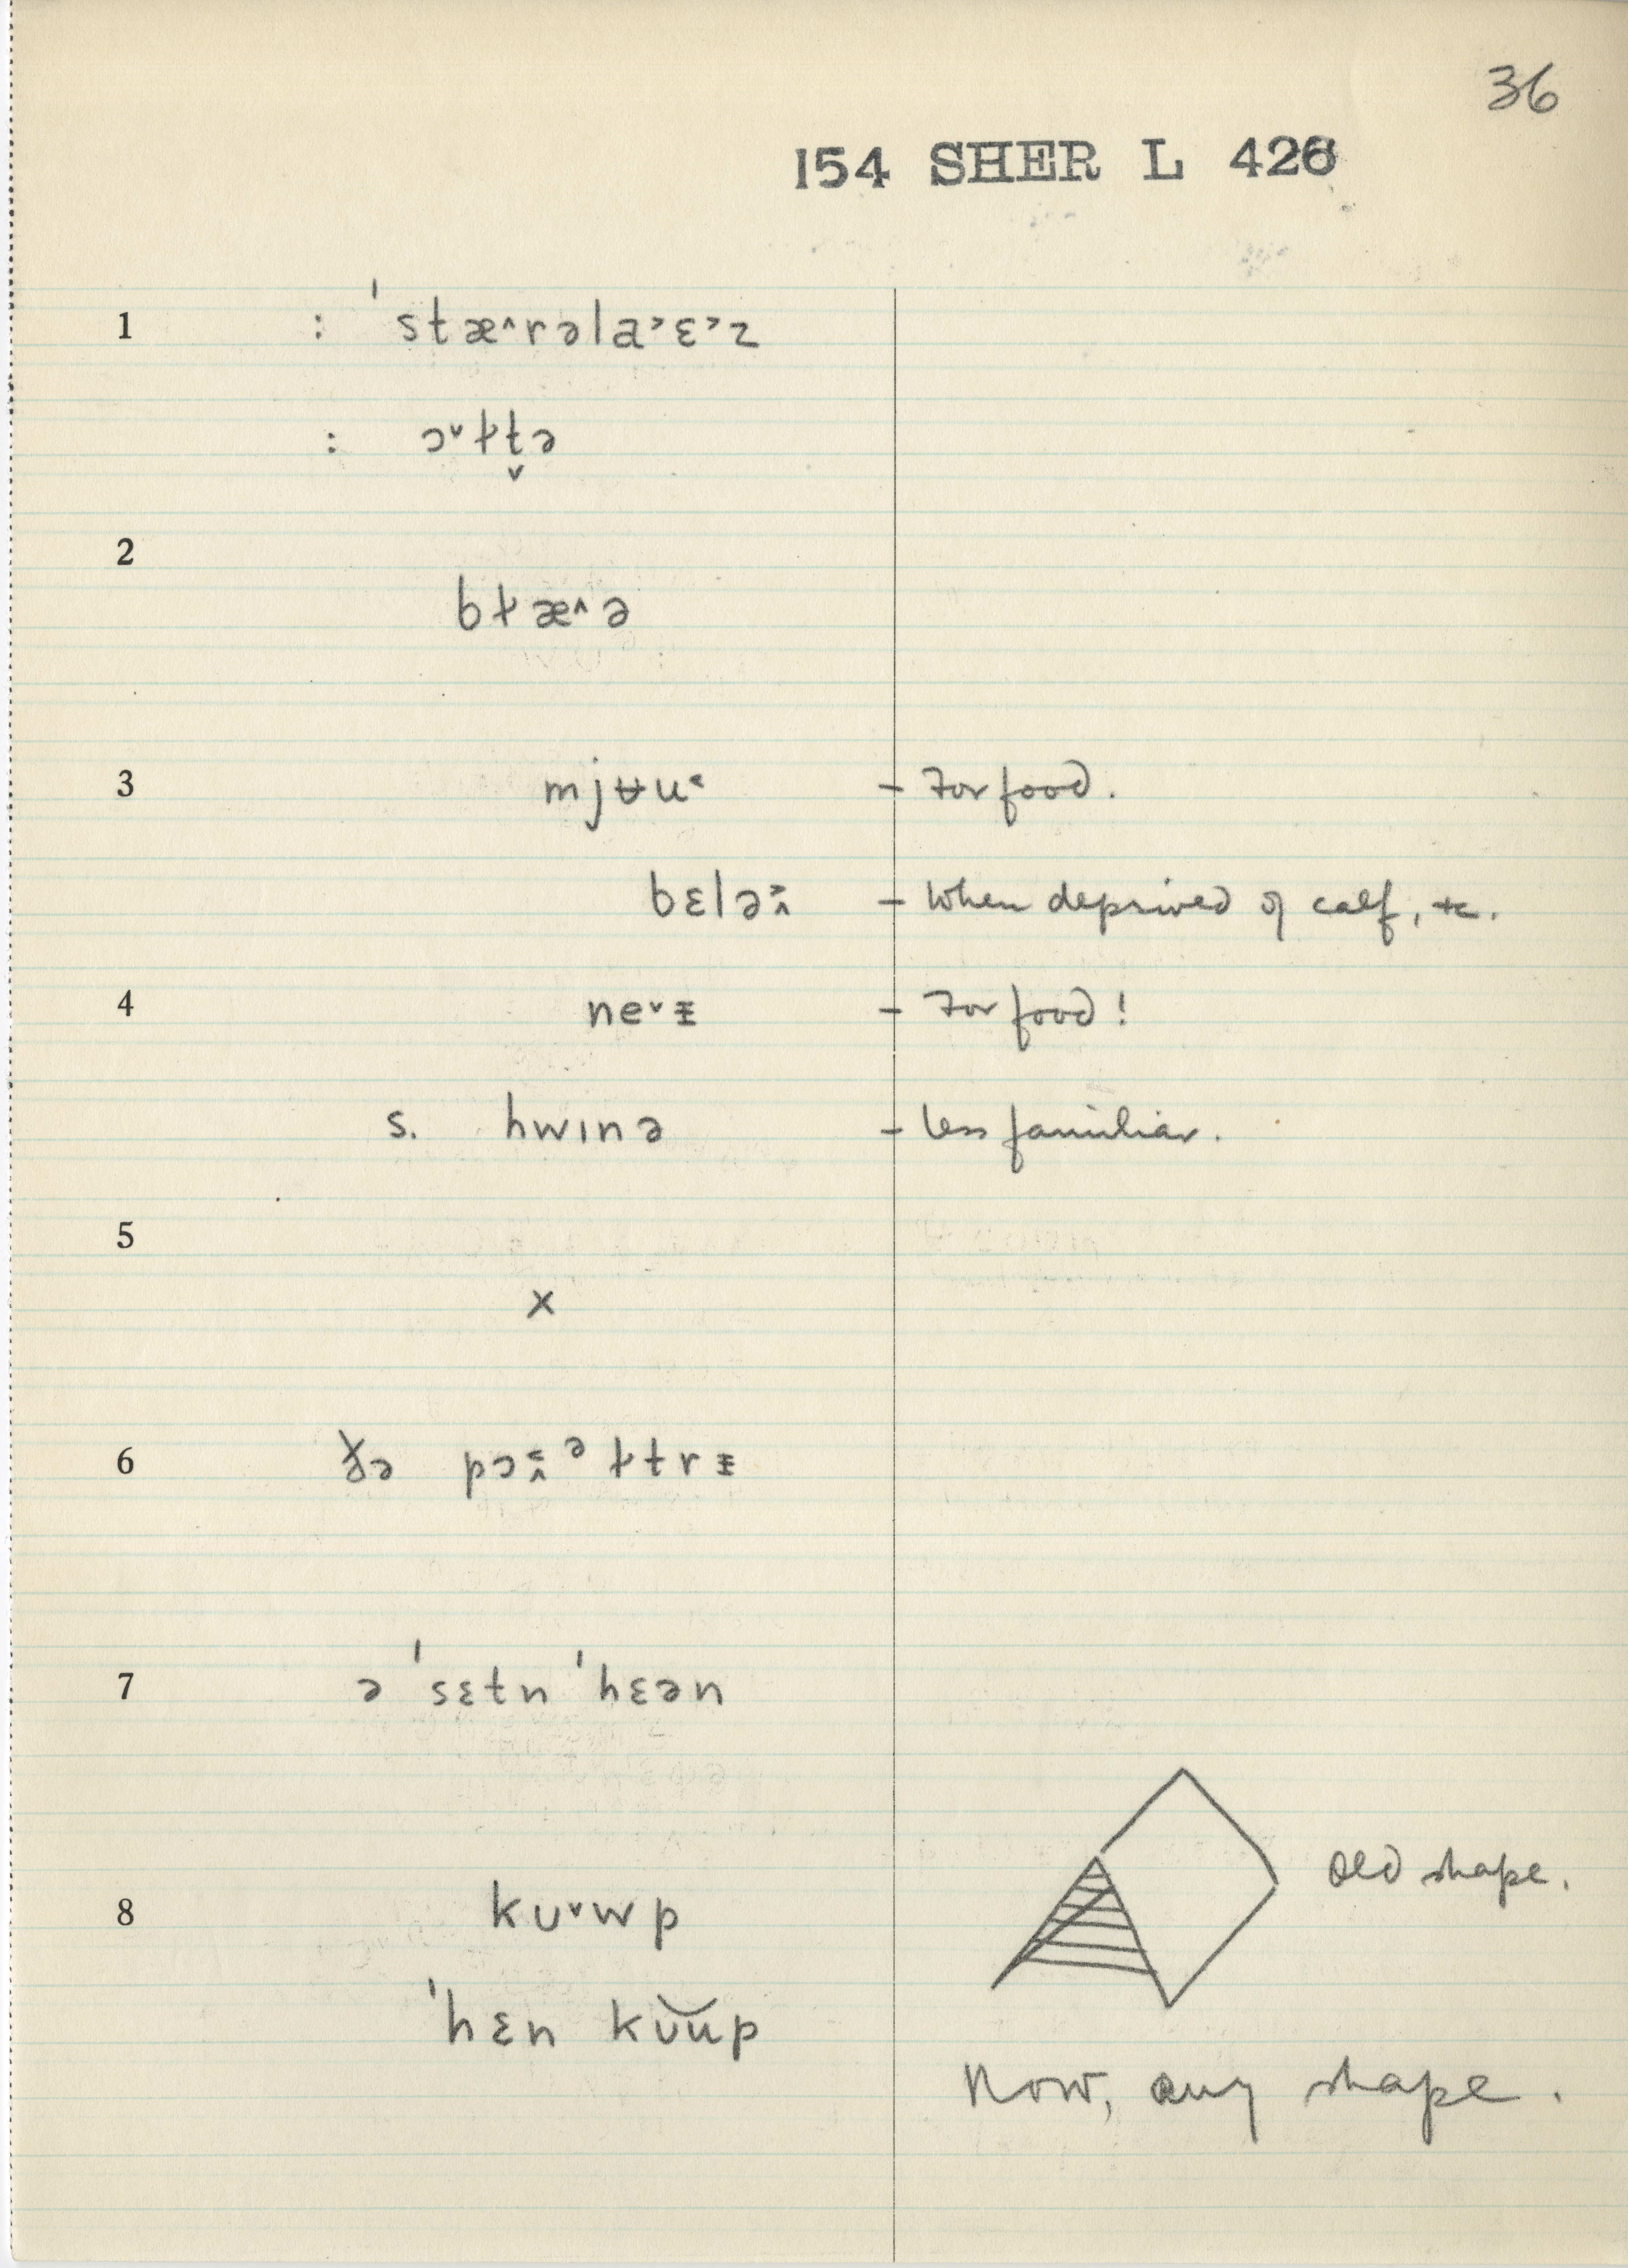 36
154 SHER L 426
1 : ˈstæ˄rəla˃ɛ˃z
: ɔ˅ɫt̬ə
2
bɫæ˄ə
3 mjʉu˂ – For food.
bɛlə˃˄ – When deprived of calf, etc.
4 ne˅ᵻ – For food!
s. hwɪnə – less familiar.
5
x
6 ðə pɔ˂˄ᵊɫtrᵻ
7 ə ˈsɛtn ˈhɛən
8 kʊ˅wp old shape.
ˈhɛn kʊ̆up
Now, any shape.